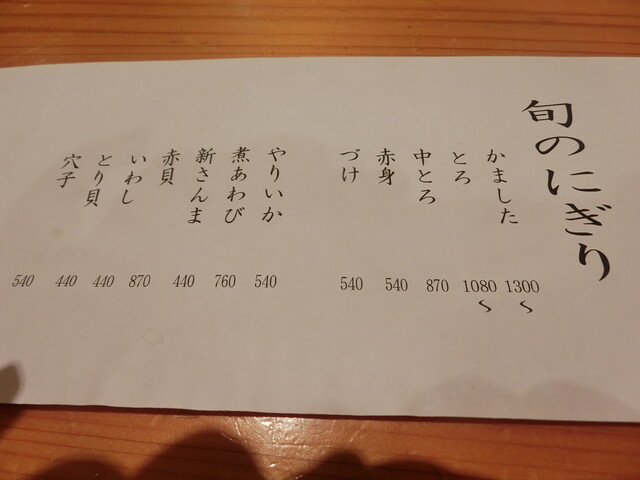 旬のにぎり
かました 1300〜
とろ 1080〜
中とろ 870
赤身 540
づけ 540
やりいか 540
煮あわび 760
新さんま 440
赤貝 870
いわし 440
とり貝 440
穴子 540